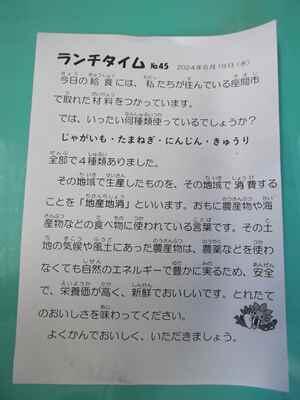 ランチタイム No.45 2024年6月19日(水)
今日の給食には、私たちが住んでいる座間市
で取れた材料をつかっています。
では、いったい何種類使っているでしょうか?
じゃがいも・たまねぎ・にんじん・きゅうり
全部で4種類ありました。
その地域で生産したものを、その地域で消費する
ことを「地産地消」といいます。おもに農産物や海
産物などの食べ物に使われている言葉です。その土
地の気候や風土にあった農産物は、農薬などを使わ
なくても自然のエネルギーで豊かに実るため、安全
で、栄養価が高く、新鮮でおいしいです。とれたて
のおいしさを味わってください。
よくかんでおいしく、いただきましょう。